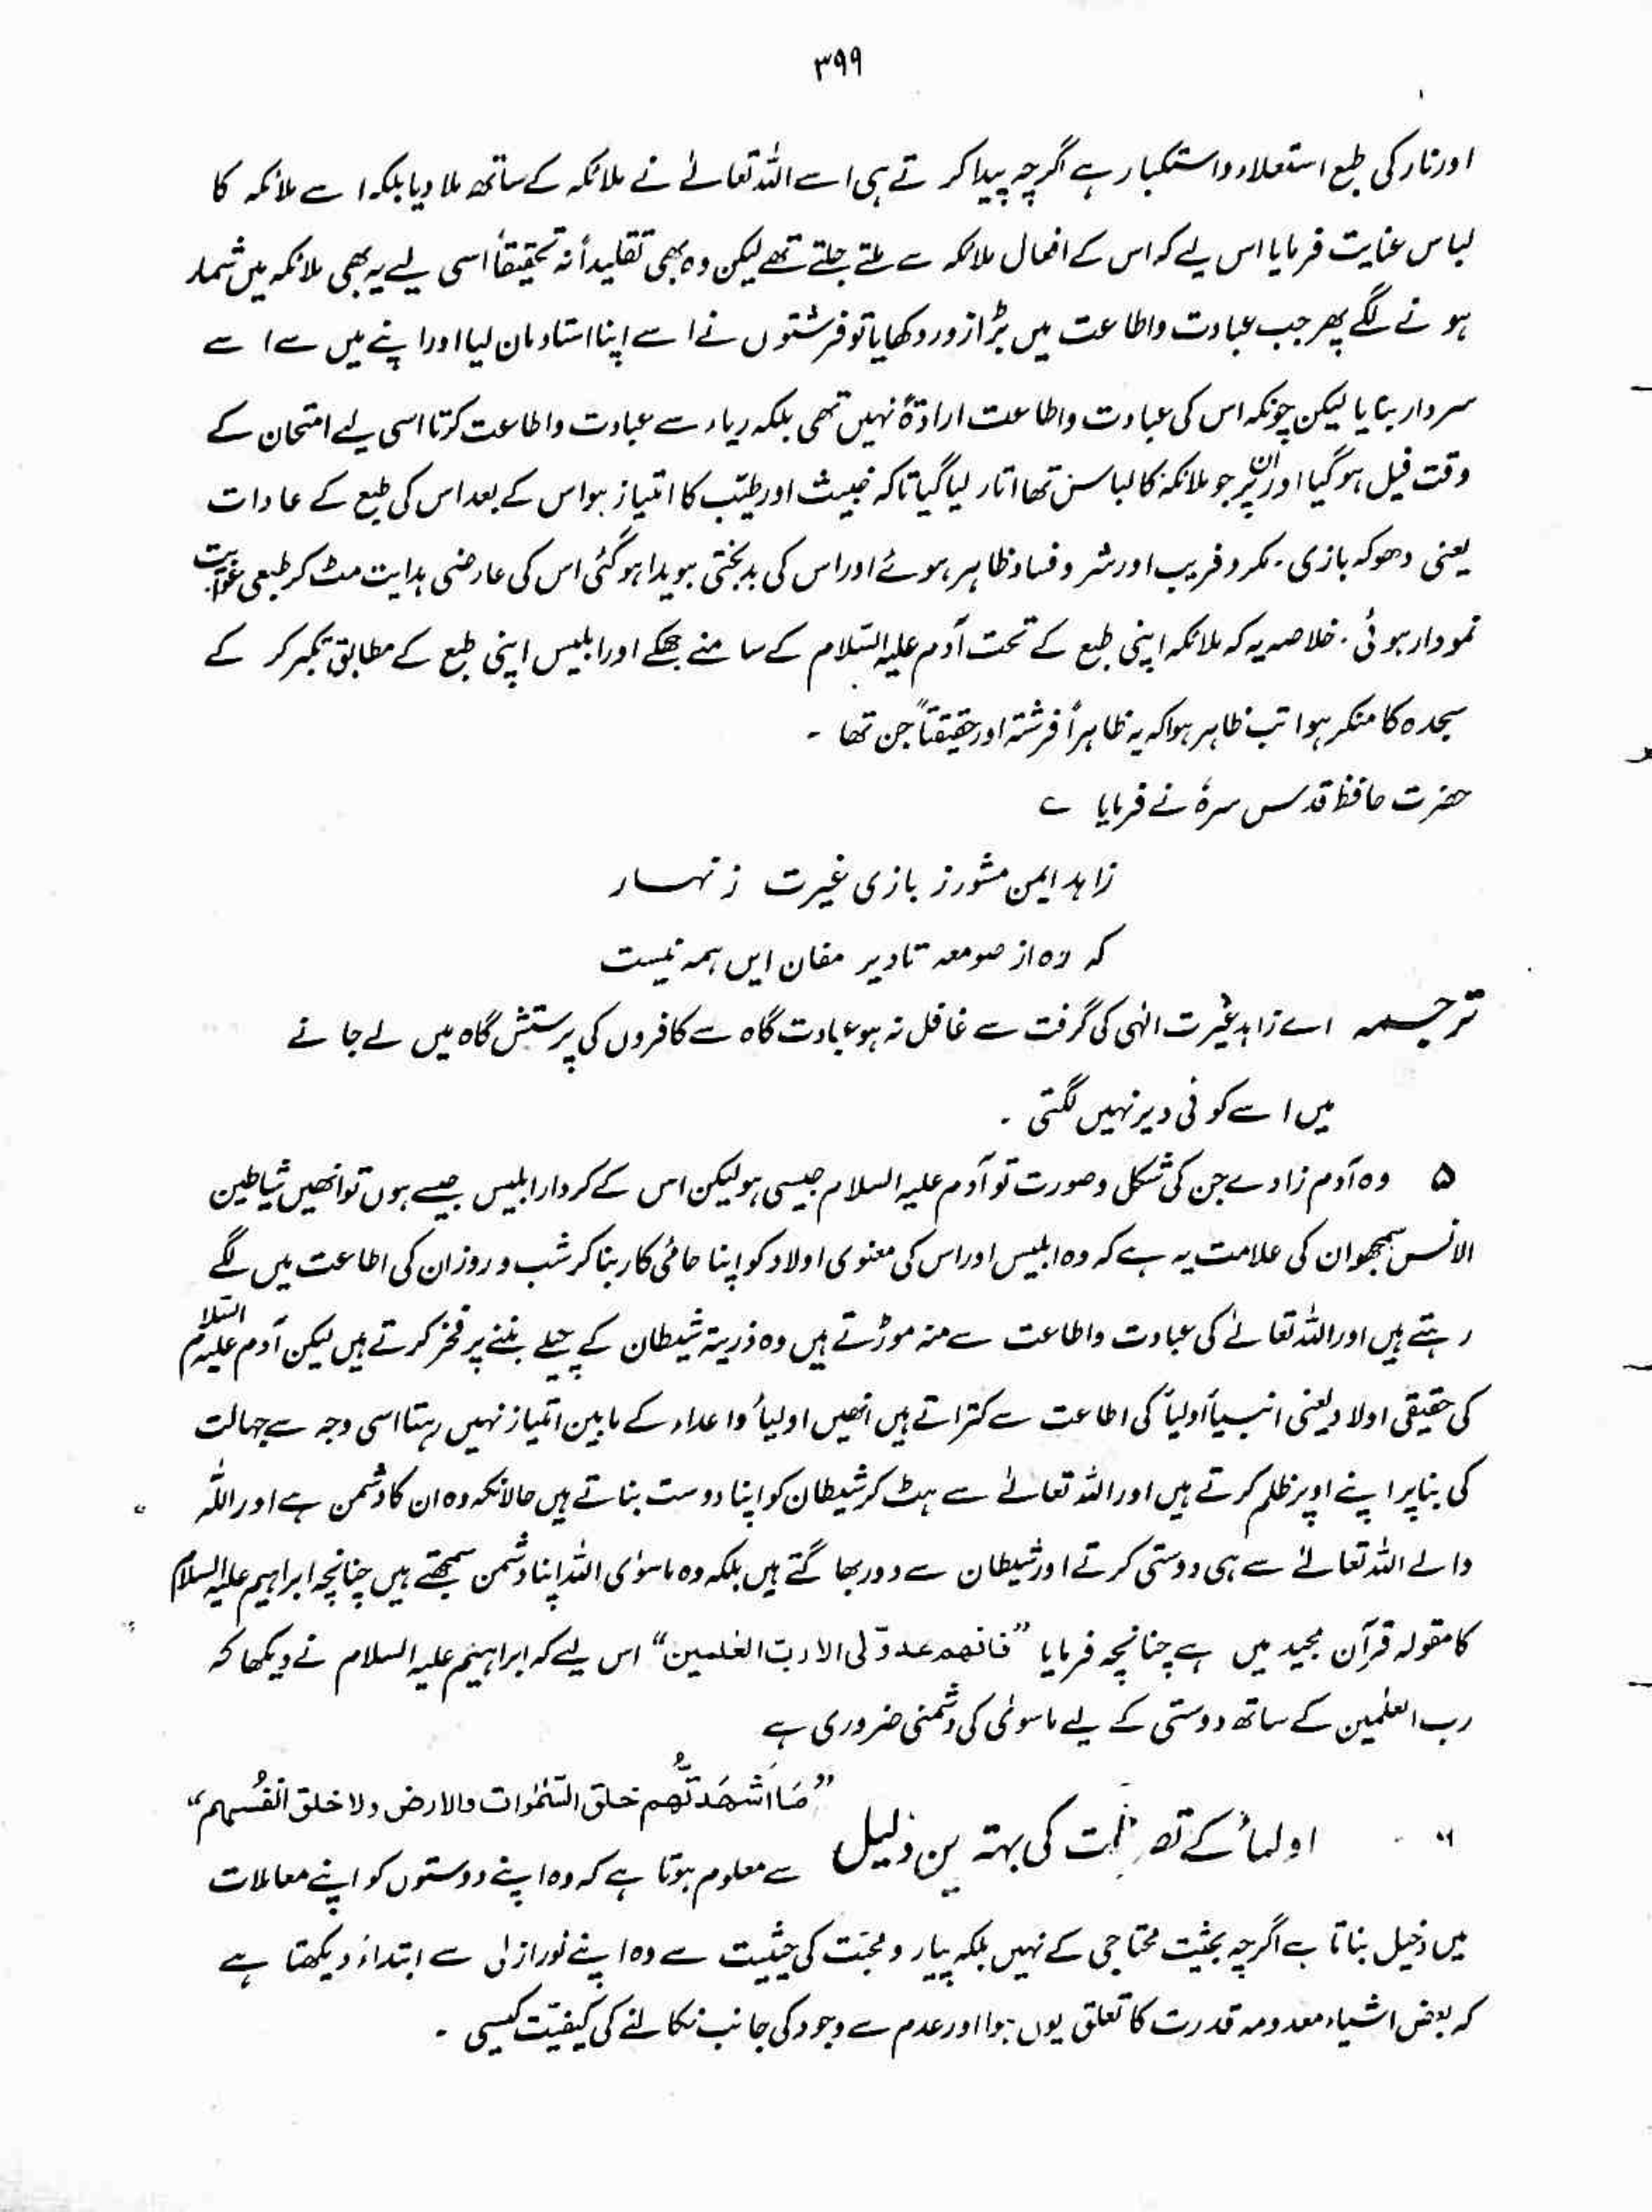 ۳۹۹
اور نار کی طبع استعلاء و استکبار ہے اگرچہ پیدا کرتے ہی اسے اللہ تعالےٰ نے ملائکہ کے ساتھ ملا دیا بلکہ اسے ملائکہ کا
لباس عنایت فرمایا اس لیے کہ اس کے افعال ملائکہ سے ملتے جلتے تھے لیکن وہ بھی تقلیداً نہ تحقیقاً اسی لیے یہ بھی ملائکہ میں شمار
ہونے لگے پھر جب عبادت و اطاعت میں بڑا زور دکھایا تو فرشتوں نے اسے اپنا استاد مان لیا اور اپنے میں سے اسے
سردار بنایا لیکن چونکہ اس کی عبادت و اطاعت ارادۃً نہیں تھی بلکہ ریاء سے عبادت و اطاعت کرتا اسی لیے امتحان کے
وقت فیل ہو گیا اور ان پر جو ملائکہ کا لباس تھا اتار لیا گیا تاکہ خبیث اور طیّب کا امتیاز ہو اس کے بعد اس کی طبع کے عادات
یعنی دھوکہ بازی۔ مکر و فریب اور شر و فساد ظاہر ہوئے اور اس کی بدبختی ہویدا ہو گئی اس کی عارضی ہدایت مٹ کر طبعی غوایت
نمودار ہوئی۔ خلاصہ یہ کہ ملائکہ اپنی طبع کے تحت آدم علیہ السّلام کے سامنے جھکے اور ابلیس اپنی طبع کے مطابق تکبر کر کے
سجدہ کا منکر ہوا تب ظاہر ہوا کہ یہ ظاہراً فرشتہ اور حقیقتاً جن تھا ۔
حضرت حافظ قدس سرہٗ نے فرمایا ؎
زاہد ایمن مشو از بازی غیرت زنہار
کہ رہ از صومعہ تا دیر مغان ایں ہمہ نیست
ترجمہ اے زاہد غیرت الٰہی کی گرفت سے غافل نہ ہو عبادت گاہ سے کافروں کی پرستش گاہ میں لے جانے
میں اسے کوئی دیر نہیں لگتی ۔
۵ وہ آدم زادے جن کی شکل و صورت تو آدم علیہ السلام جیسی ہو لیکن اس کے کردار ابلیس جیسے ہوں تو انھیں شیاطین
الانس سمجھو ان کی علامت یہ ہے کہ وہ ابلیس اور اس کی معنوی اولاد کو اپنا حامئ کار بنا کر شب و روز ان کی اطاعت میں لگے
رہتے ہیں اور اللہ تعالےٰ کی عبادت و اطاعت سے منہ موڑتے ہیں وہ ذریۃ شیطان کے چیلے بننے پر فخر کرتے ہیں لیکن آدم علیہ السلام
کی حقیقی اولاد یعنی انبیاء اولیاء کی اطاعت سے کتراتے ہیں انھیں اولیاء و اعداء کے مابین امتیاز نہیں رہتا اسی وجہ سے جہالت
کی بنا پر اپنے اوپر ظلم کرتے ہیں اور اللہ تعالےٰ سے ہٹ کر شیطان کو اپنا دوست بناتے ہیں حالانکہ وہ ان کا دشمن ہے اور اللّٰہ
والے اللہ تعالےٰ سے ہی دوستی کرتے اور شیطان سے دور بھاگتے ہیں بلکہ وہ ماسوٰی اللہ اپنا دشمن سمجھتے ہیں چنانچہ ابراہیم علیہ السلام
کا مقولہ قرآن مجید میں ہے چنانچہ فرمایا ”فانھم عدوّ لی الا ربّ العٰلمین“ اس لیے کہ ابراہیم علیہ السلام نے دیکھا کہ
رب العٰلمین کے ساتھ دوستی کے لیے ماسوٰی کی دشمنی ضروری ہے
”مَا اَشْهَدتُّهُم خلق السّمٰوات والارض ولا خلق انفُسِهم“
۶ اولیاء کے تصرفات کی بہترین دلیل
سے معلوم ہوتا ہے کہ وہ اپنے دوستوں کو اپنے معاملات
میں دخیل بناتا ہے اگرچہ بحیثیت محتاجی کے نہیں بلکہ پیار و محبّت کی حیثیت سے وہ اپنے نور ازلی سے ابتداءً دیکھتا ہے
کہ بعض اشیاء معدومہ قدرت کا تعلق یوں ہوا اور عدم سے وجود کی جانب نکالنے کی کیفیّت کیسی ۔